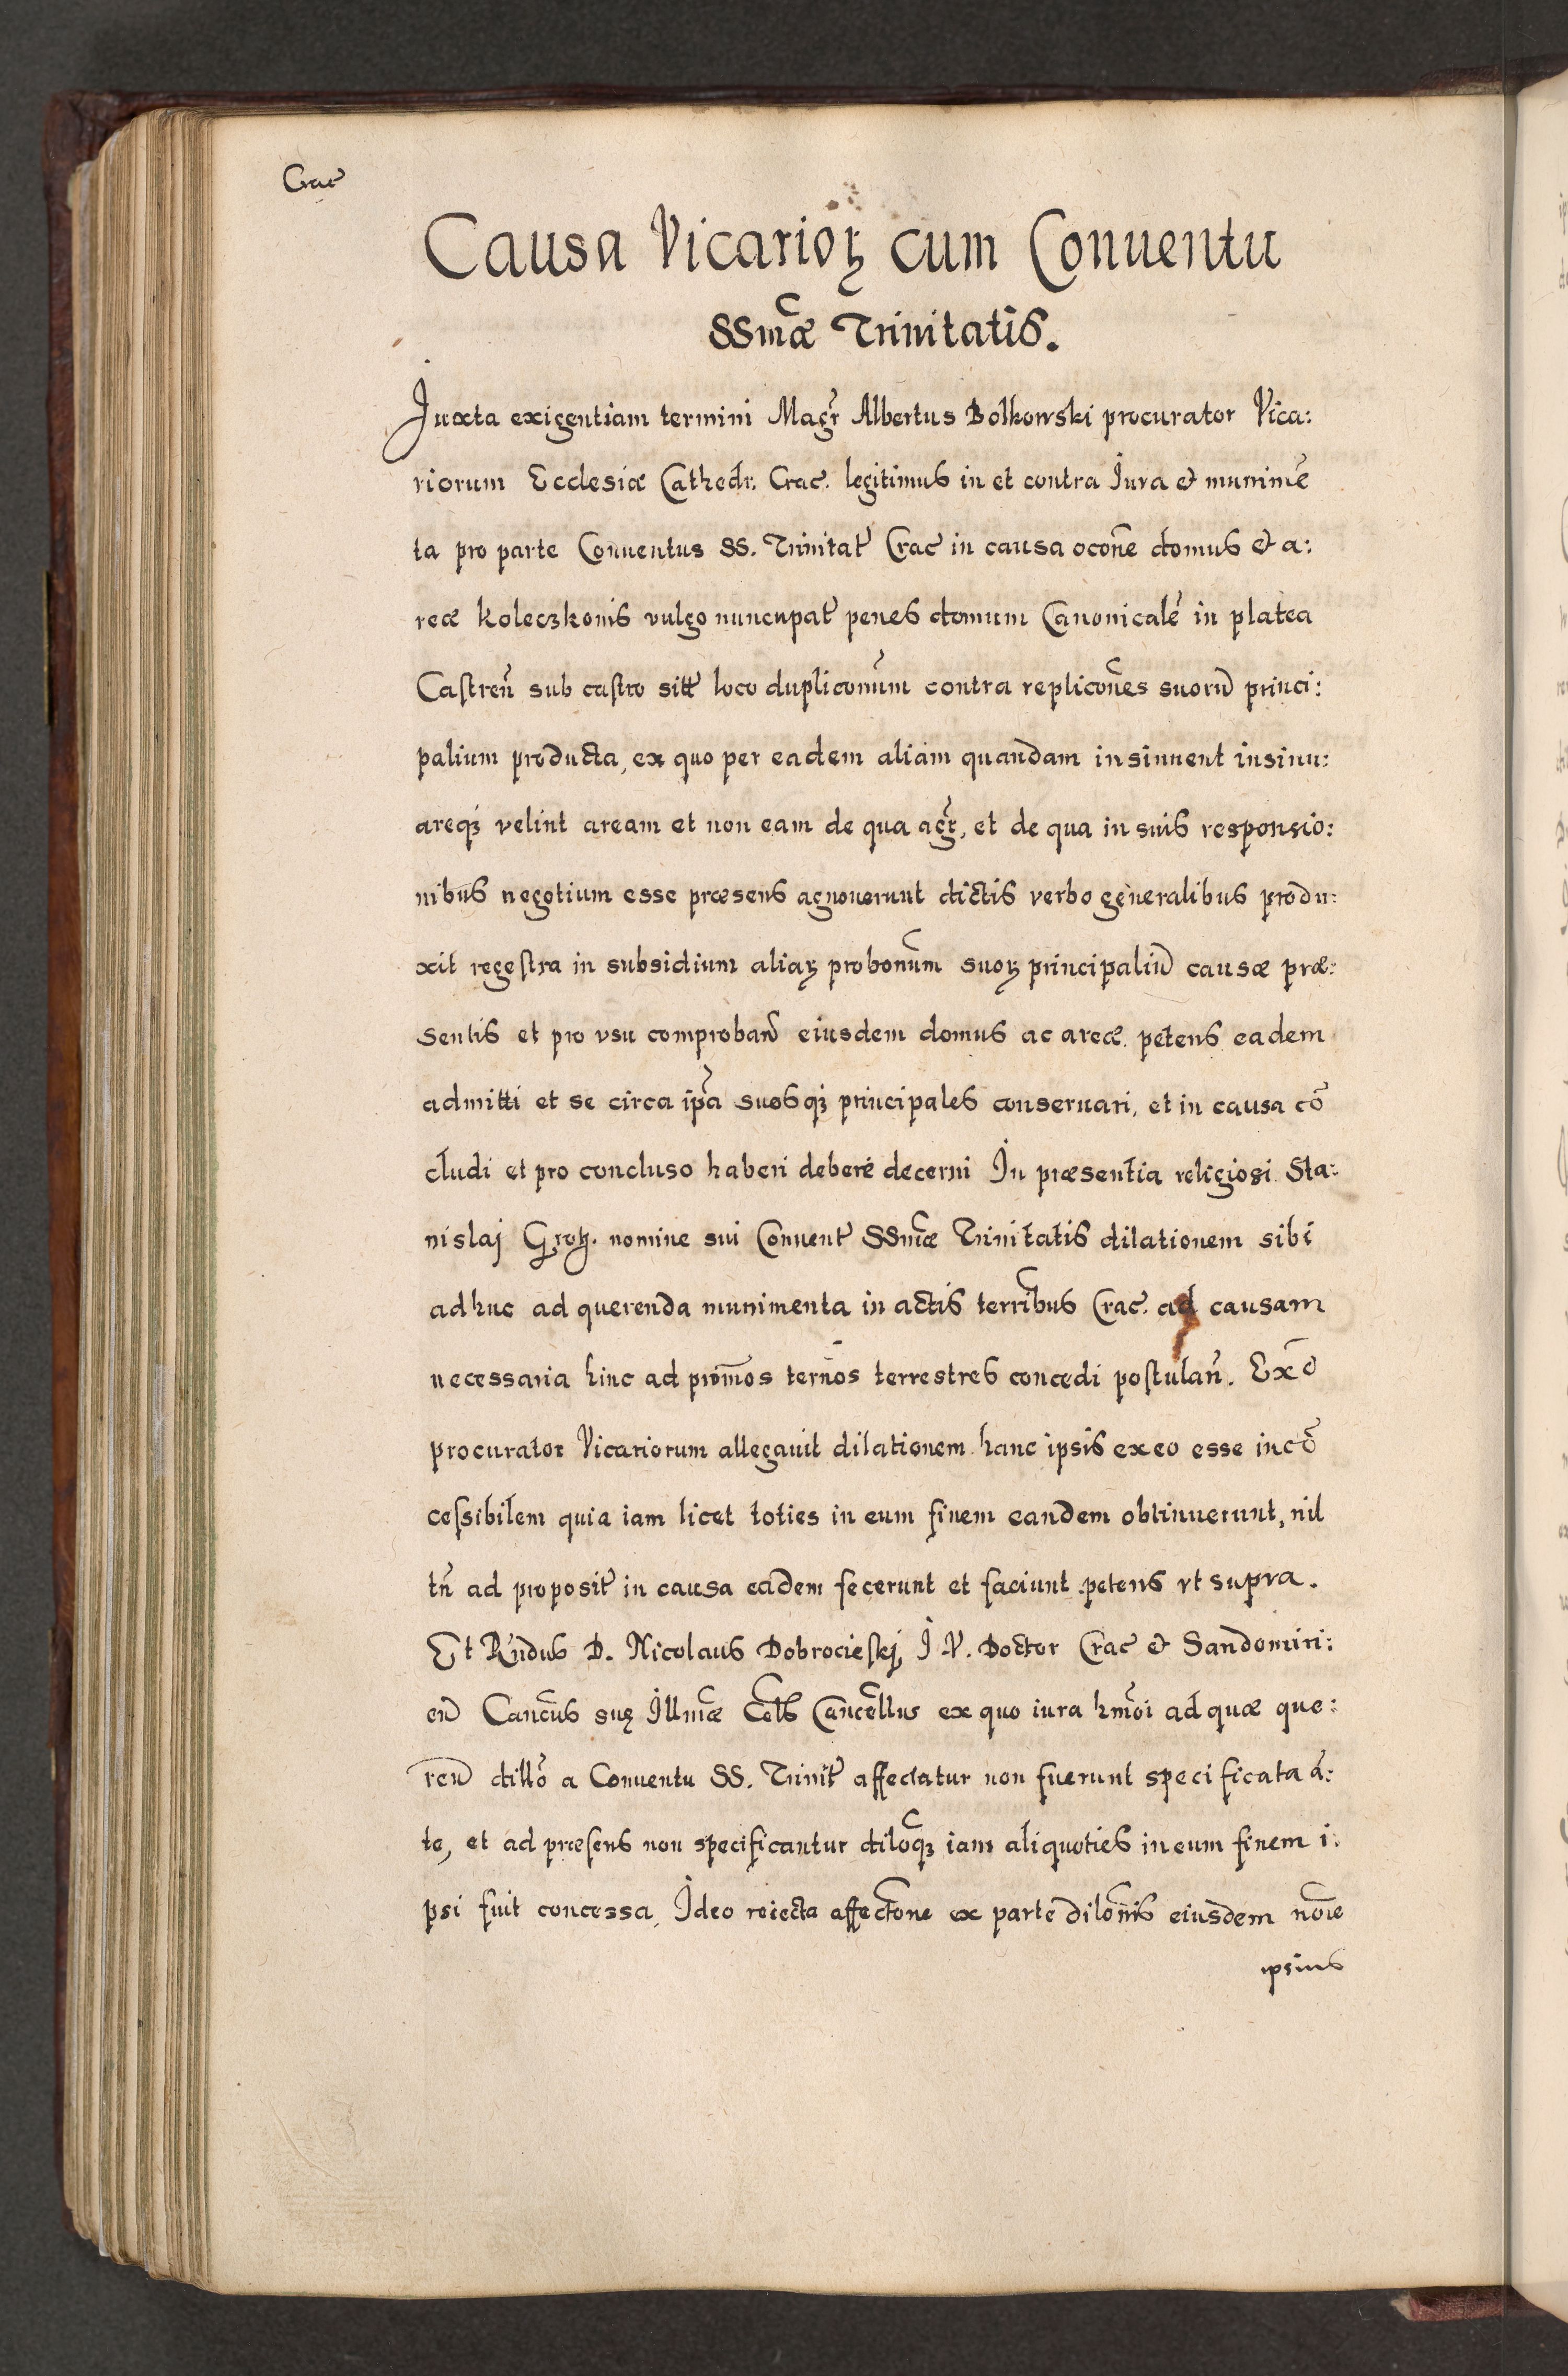 Crac̃
Causa Vicarioꝝ cum Conuentu
SSm̃æ Trinitatis.
Juxta exigentiam termini Magr̃ Albertus Bolkowski procurator Vica:
riorum Ecclesiæ Cathedr. Crac̃. legitimus in et contra Jura & munimẽ
ta pro parte Conuentus SS. Trinitat̃ Crac̃ in causa ocõne domus & a:
reæ Koleczkonis vulgo nuncupat̃ penes domum Canonicalẽ in platea
Castreñ sub castro sitt̃ loco duplicoñum contra replicoñes suorũ princi:
palium producta, ex quo per eadem aliam quandam insinuent insinu:
areqꝫ velint aream et non eam de qua agr̃, et de qua in suis responsio:
nibus negotium esse præsens agnouerunt dictis verbo generalibus produ:
xit regestra in subsidium aliaꝝ probonũm suoꝝ principaliũ causæ præ:
sentis et pro vsu comproband̃ eiusdem domus ac areæ petens eadem
admitti et se circa ip̃a suosqꝫ principales conseruari, et in causa cõ
cludi et pro concluso haberi debere decerni In præsentia religiosi Sta:
nislaj Groꝝ. nomine sui Conuent̃ SSm̃æ Trinitatis dilationem sibi
adhuc ad querenda munimenta in actis terrĩbus Crac̃. ad causam
necessaria hinc ad proxim̃os termĩos terrestres concedi postulañ. Ex õ
procurator Vicariorum allegauit dilationem hanc ipsis ex eo esse incõ
cessibilem quia iam licet toties in eum finem eandem obtinuerunt, nil
tñ ad proposit̃ in causa eadem fecerunt et faciunt petens vt supra.
Et Rñdus D. Nicolaus Dobrocieskj J. V. Doctor Crac̃ & Sandomiri:
eñ Canc̃us suę Illm̃æ Cels̃ Cancẽllus ex quo iura hm̃oi ad quæ que:
rend̃ dill̃o a Conuentu SS. Trinit̃ affectatur non fuerunt specificata ã:
te, et ad præsens non specificantur dilõqꝫ iam aliquoties in eum finem i:
psi fuit concessa, Ideo reiecta affectõne ex parte dilõnis eiusdem nõie
ipsius